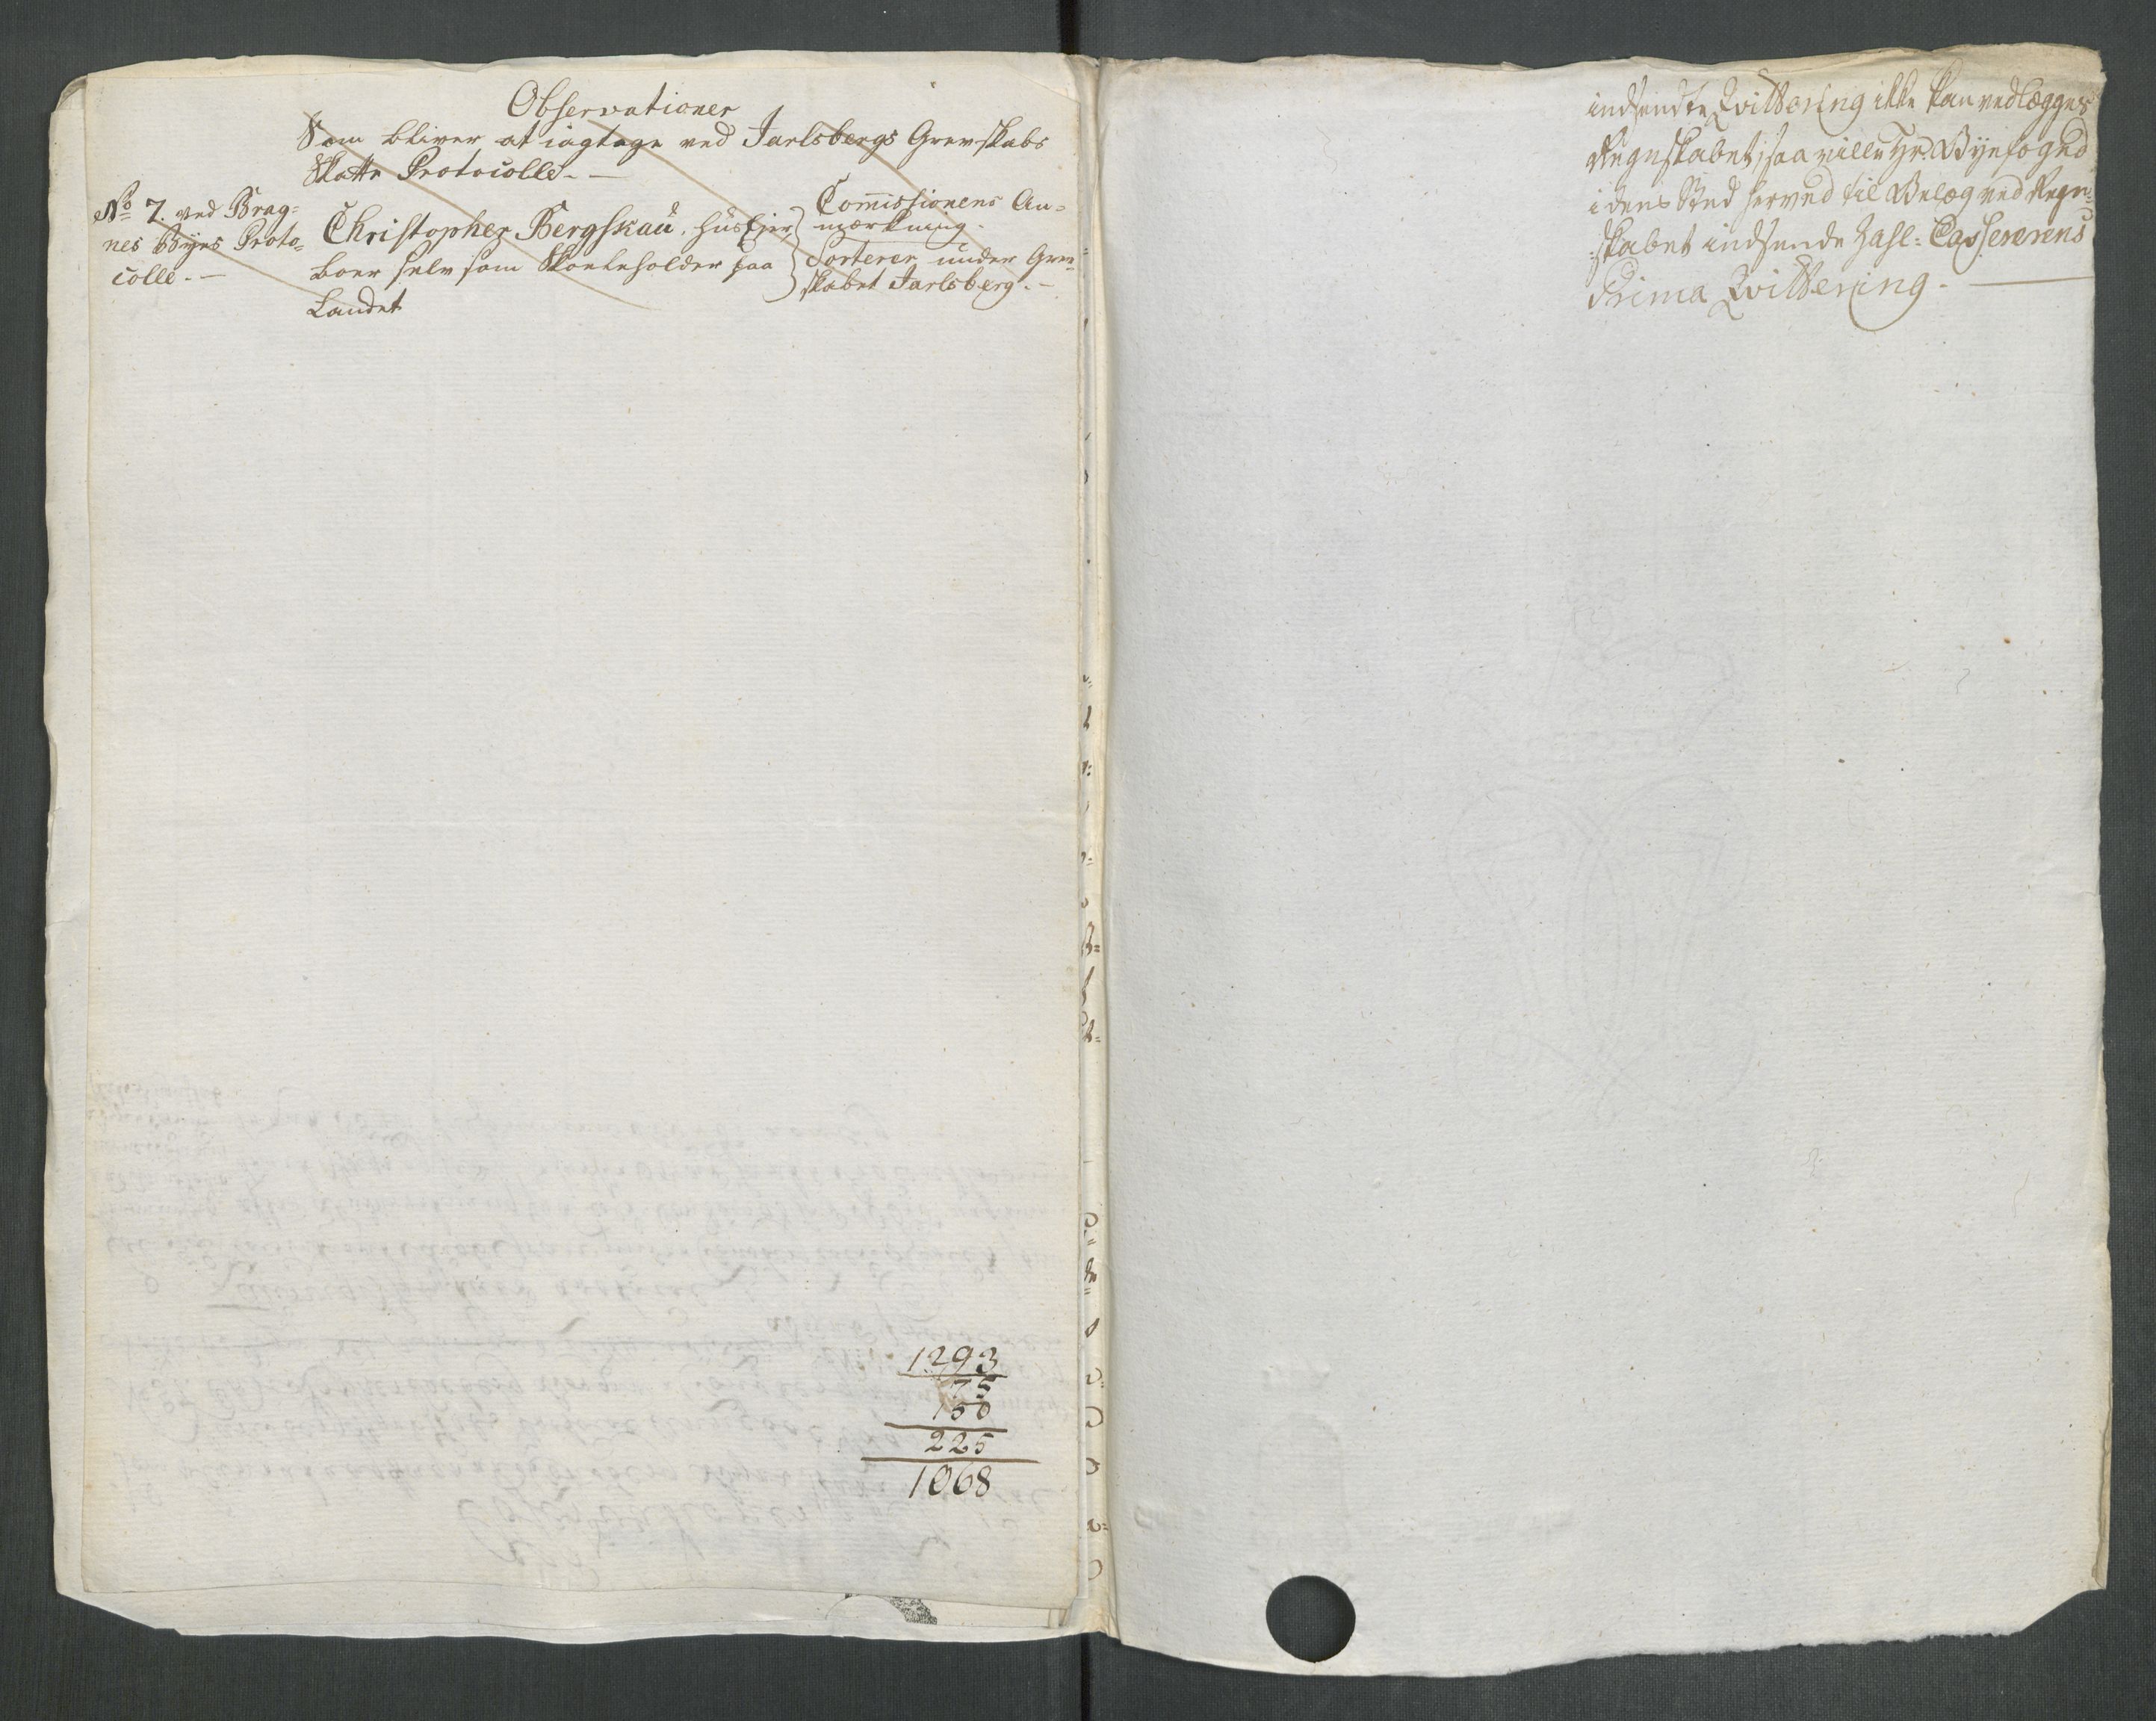 Observationer
Som bliver at iagtage ved Jarlsbergs Grevskabs
Skatte Protocolle. —
No 7. ved Brag=
nes Byes Proto=
colle. —
Christopher Bergskau, huus Ejer
boer selv som Skoeleholder paa
Landet
Commissionens An=
mærkning.
Sorterer under Grev=
skabet Jarlsberg. —
1293
75
150
225
1068
indsendte Qvittering ikke kan vedlægges
Regnskabet, saa ville Hr. Byefoged
i dens Sted herved til Belæg ved Regn=
skabet indsende Zahl: Cassererens
Prima Qvittering. —